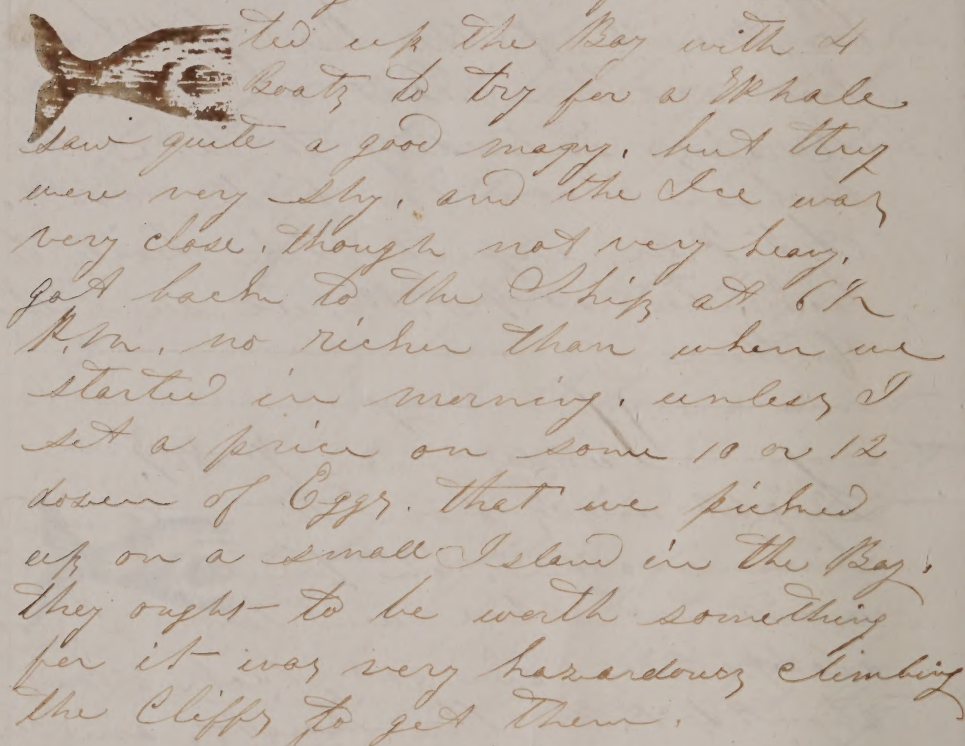 ted up the Bay with 4
Boats to try for a Whale
saw quite a good many, but they
were very shy, and the Ice was
very close, though not very heavy,
got back to the Ship at 6½
P.M. no richer than when we
started in morning, unless I
set a price on some 10 or 12
dozen of Eggs. that we picked
up on a small Island in the Bay,
they ought to be worth something
for it was very hazardous climbing
the Cliffs to get them.